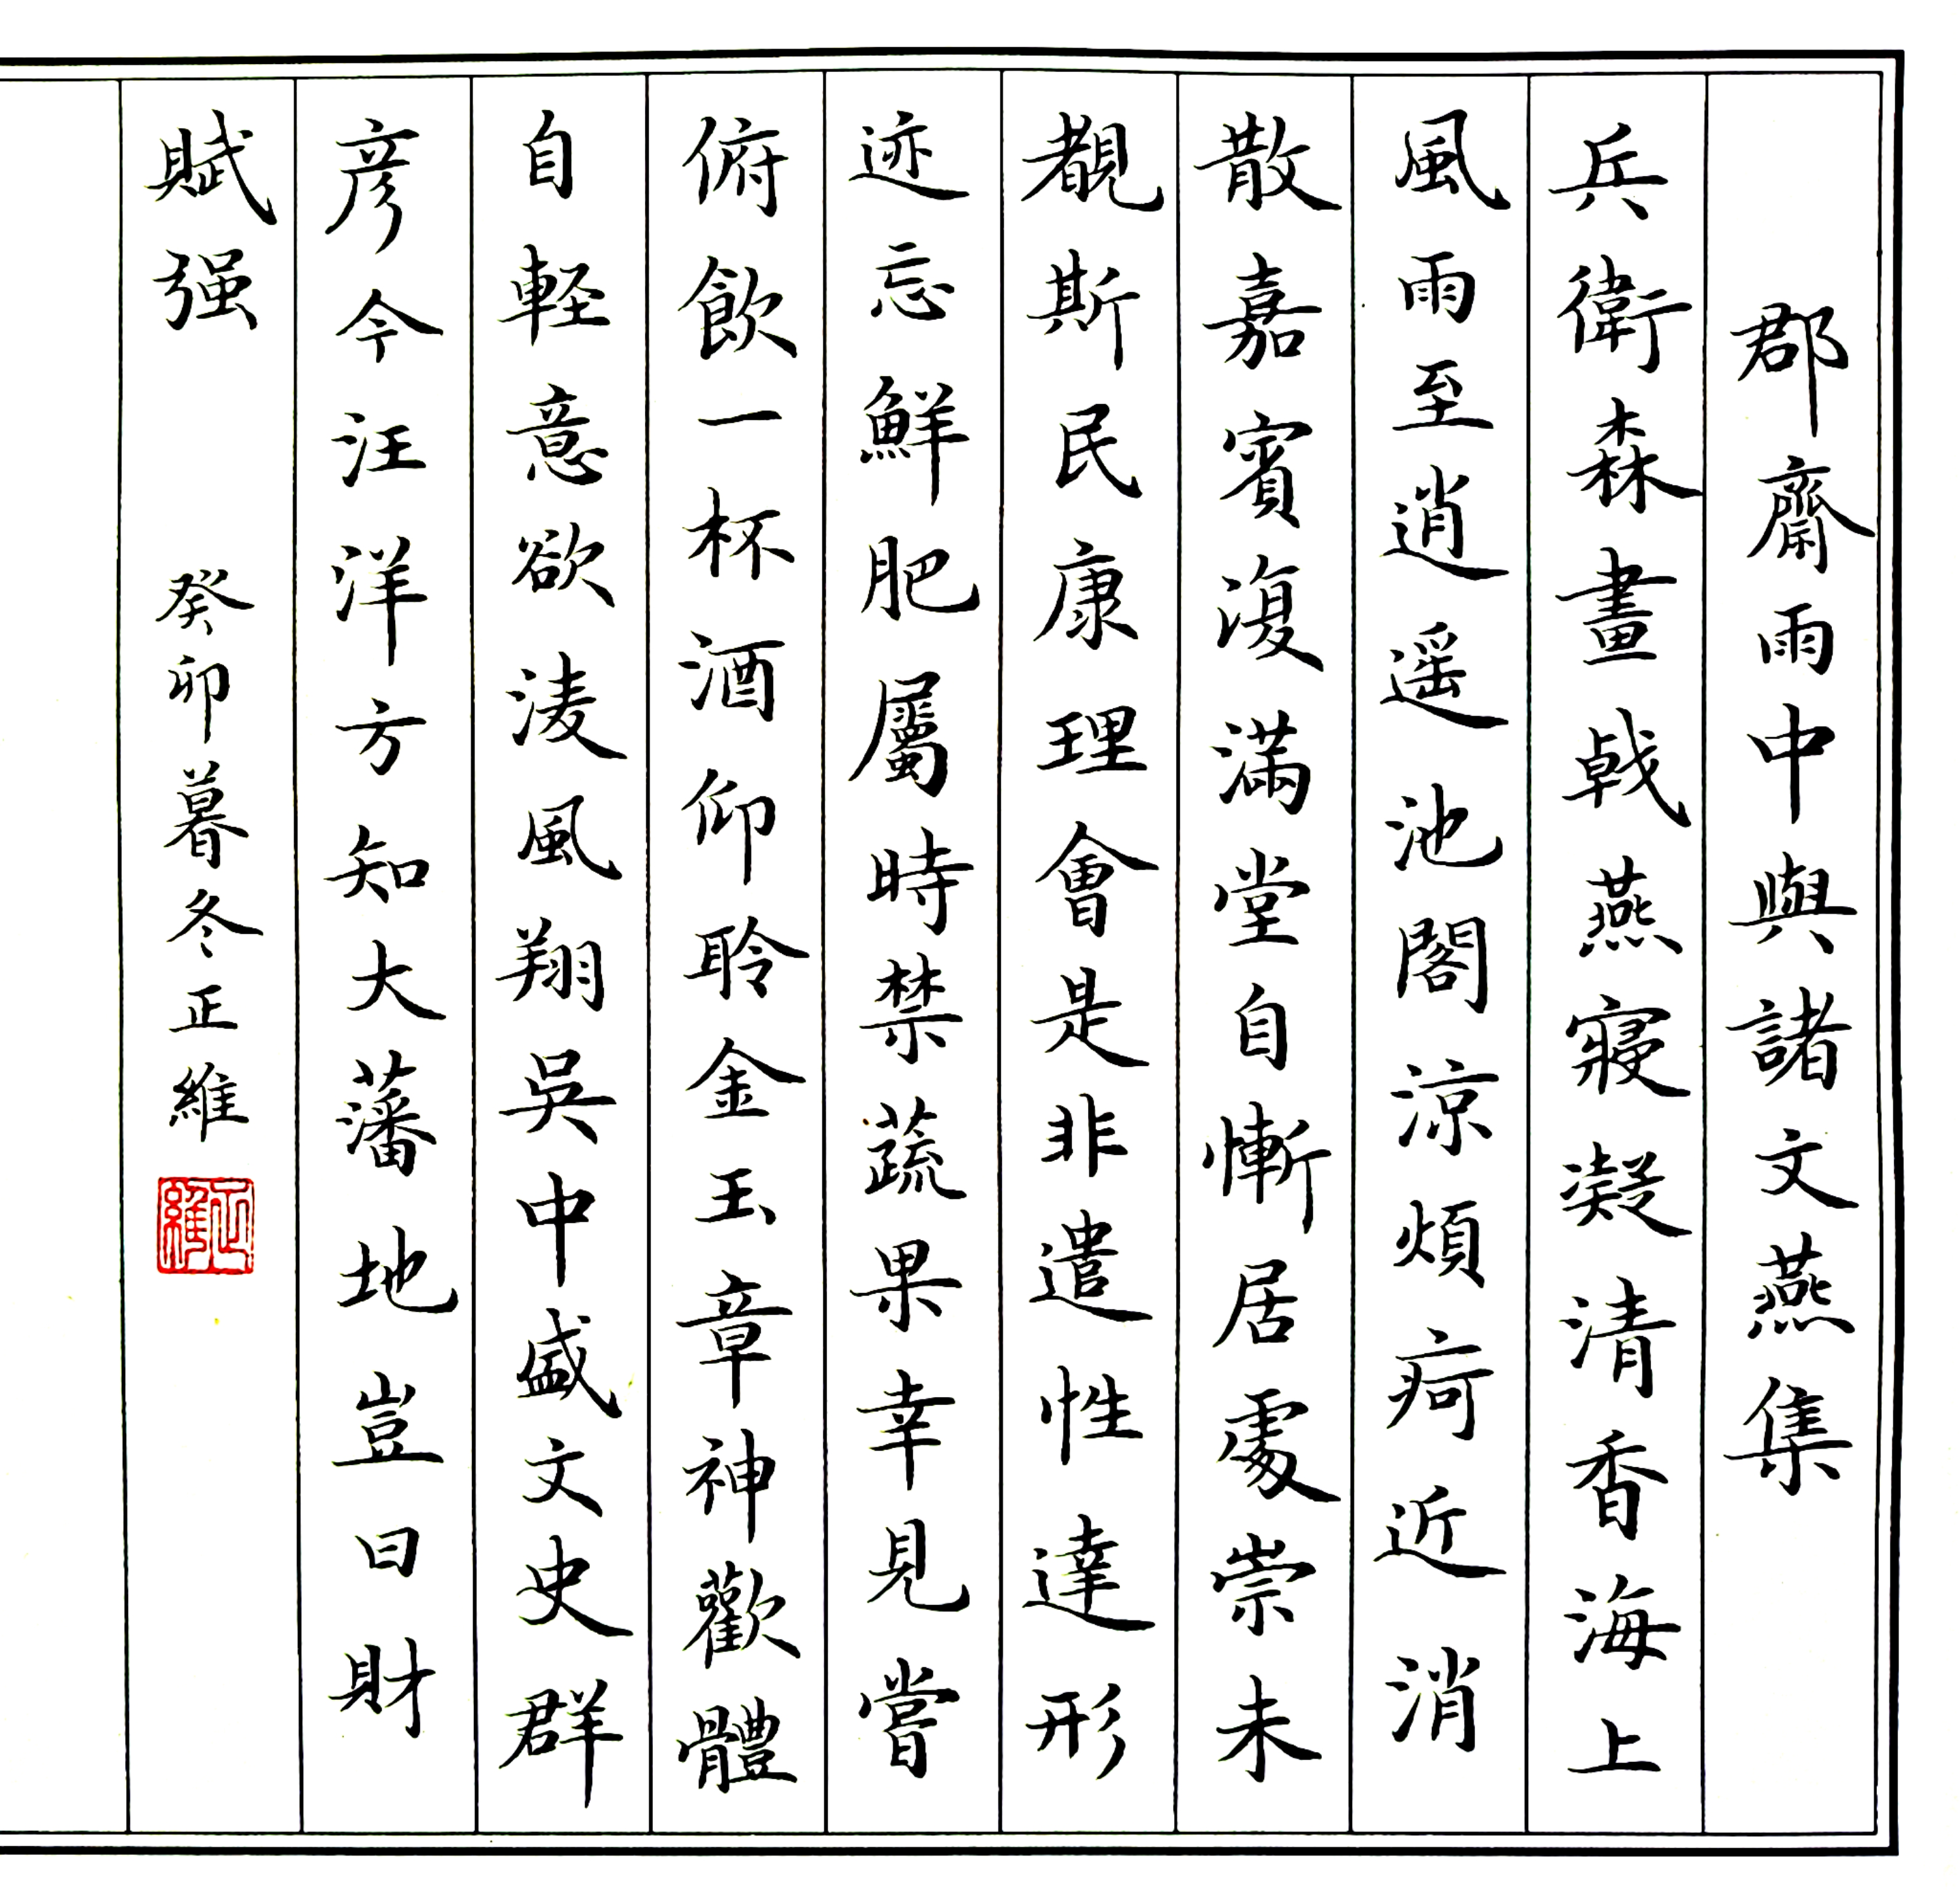 郡齋雨中與諸文燕集
兵衛森畫戟燕寢凝清香海上
風雨至逍遥池閣涼煩疴近消
散嘉賓復滿堂自慚居處崇未
覩斯民康理會是非遣性達形
迹忘鮮肥屬時禁蔬果幸見嘗
俯飲一杯酒仰聆金玉章神歡體
自軽意欲淩風翔吳中盛文史群
彦今汪洋方知大藩地豈曰財
賦强
癸卯暮冬正維
正維